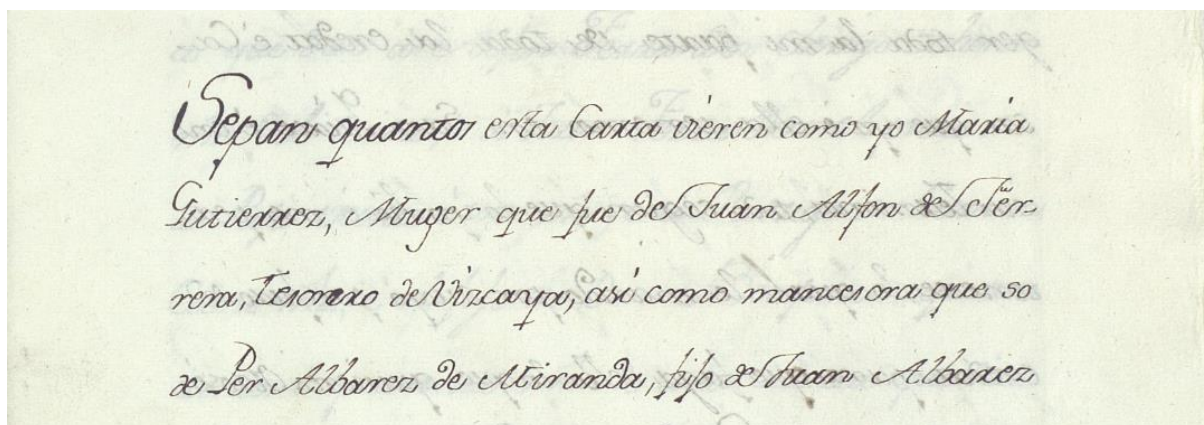 Sepan quantos esta Carta vieren como yo Maria
Gutierrez, Muger que fue de Juan Alfon de
rera, tesorero de Vizcaya, asi como mancesora que so
de Per Albarez de Miranda, fijo de Juan Albarez